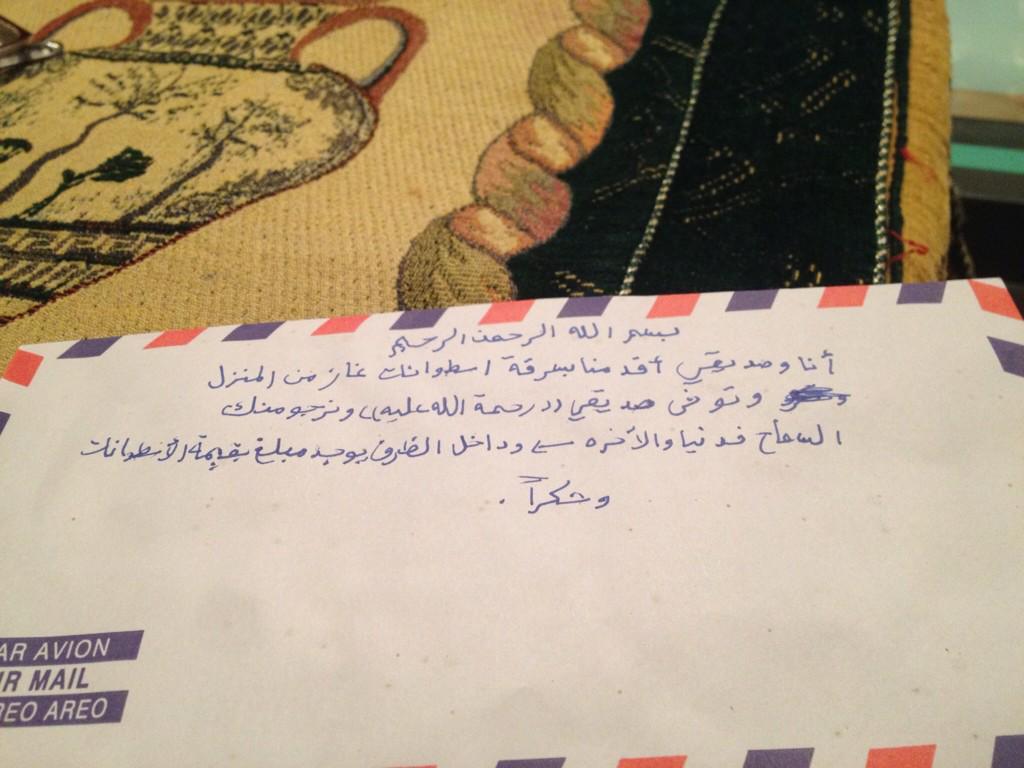 بسم الله الرحمن الرحيم
أنا وصديقي أقدمنا بسرقة اسطوانات غاز من المنزل
وتوفى صديقي ((رحمة الله عليه)) ونرجو منك
السماح فدنيا والآخره وداخل الظرف يوجد مبلغ بقيمة الأسطوانات
وشكراً .
AR AVION
IR MAIL
REO AREO